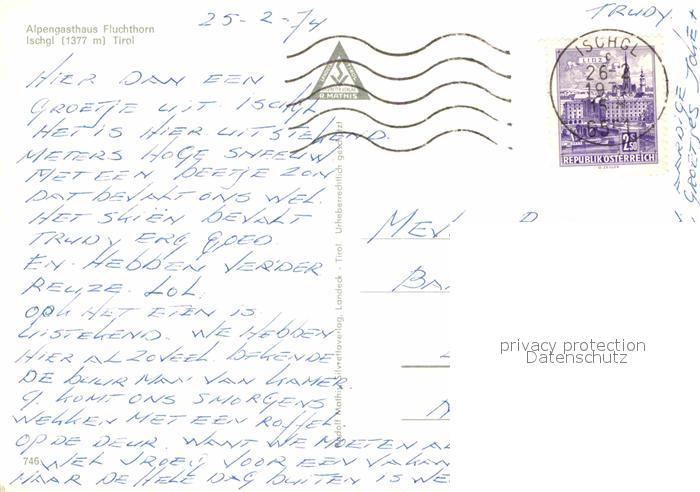 Alpengasthaus Fluchthorn
Ischgl (1377 m) Tirol
25-2-74
HIER DAN EEN
GROETJE UIT ISCHGL
HET IS HIER UITSTEKEND.
METERS HOGE SNEEUW
MET EEN BEETJE ZON
DAT BEVALT ONS WEL.
HET SKIËN BEVALT
TRUDY ERG GOED.
EN HEBBEN VERDER
REUZE LOL.
OOK HET ETEN IS
UITSTEKEND. WE HEBBEN
HIER AL ZOVEEL BEKENDE
DE BUURMAN VAN KAMER
9. KOMT ONS SMORGENS
WEKKEN MET EEN ROFFEL
OP DE DEUR. WANT WE MOETEN AL
WEL VROEG VOOR EEN VAKAN
MAAR DE HELE DAG BUITEN IS WE
746
R. MATHIS
Rudolf Mathis, Silvrettaverlag, Landeck - Tirol Urheberrechtlich geschützt
TRUDY.
AARDIGE
GROETJES JOKE
ISCHGL
26-2
LINZ
2.50
REPUBLIK ÖSTERREICH
MEV
D
BA
privacy protection
Datenschutz